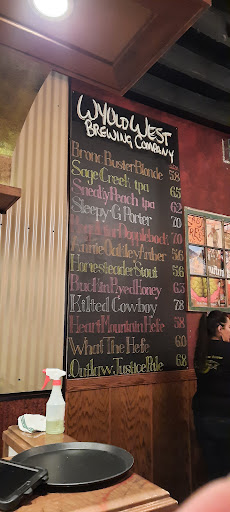 WYOLD WEST
BREWING COMPANY
Bronc Buster Blonde 5.8
Sage Creek ipa 6.5
Sneaky Peach ipa 6.2
Sleepy-G Porter 7.0
Dopplebock 7.0
Annie Oakley Amber 5.6
Homesteader Stout 5.6
Buckin Ryed Honey 6.5
Kilted Cowboy 7.8
Heart Mountain Hefe 5.8
What The Hefe 6.0
Outlaw Justice Pale 6.8